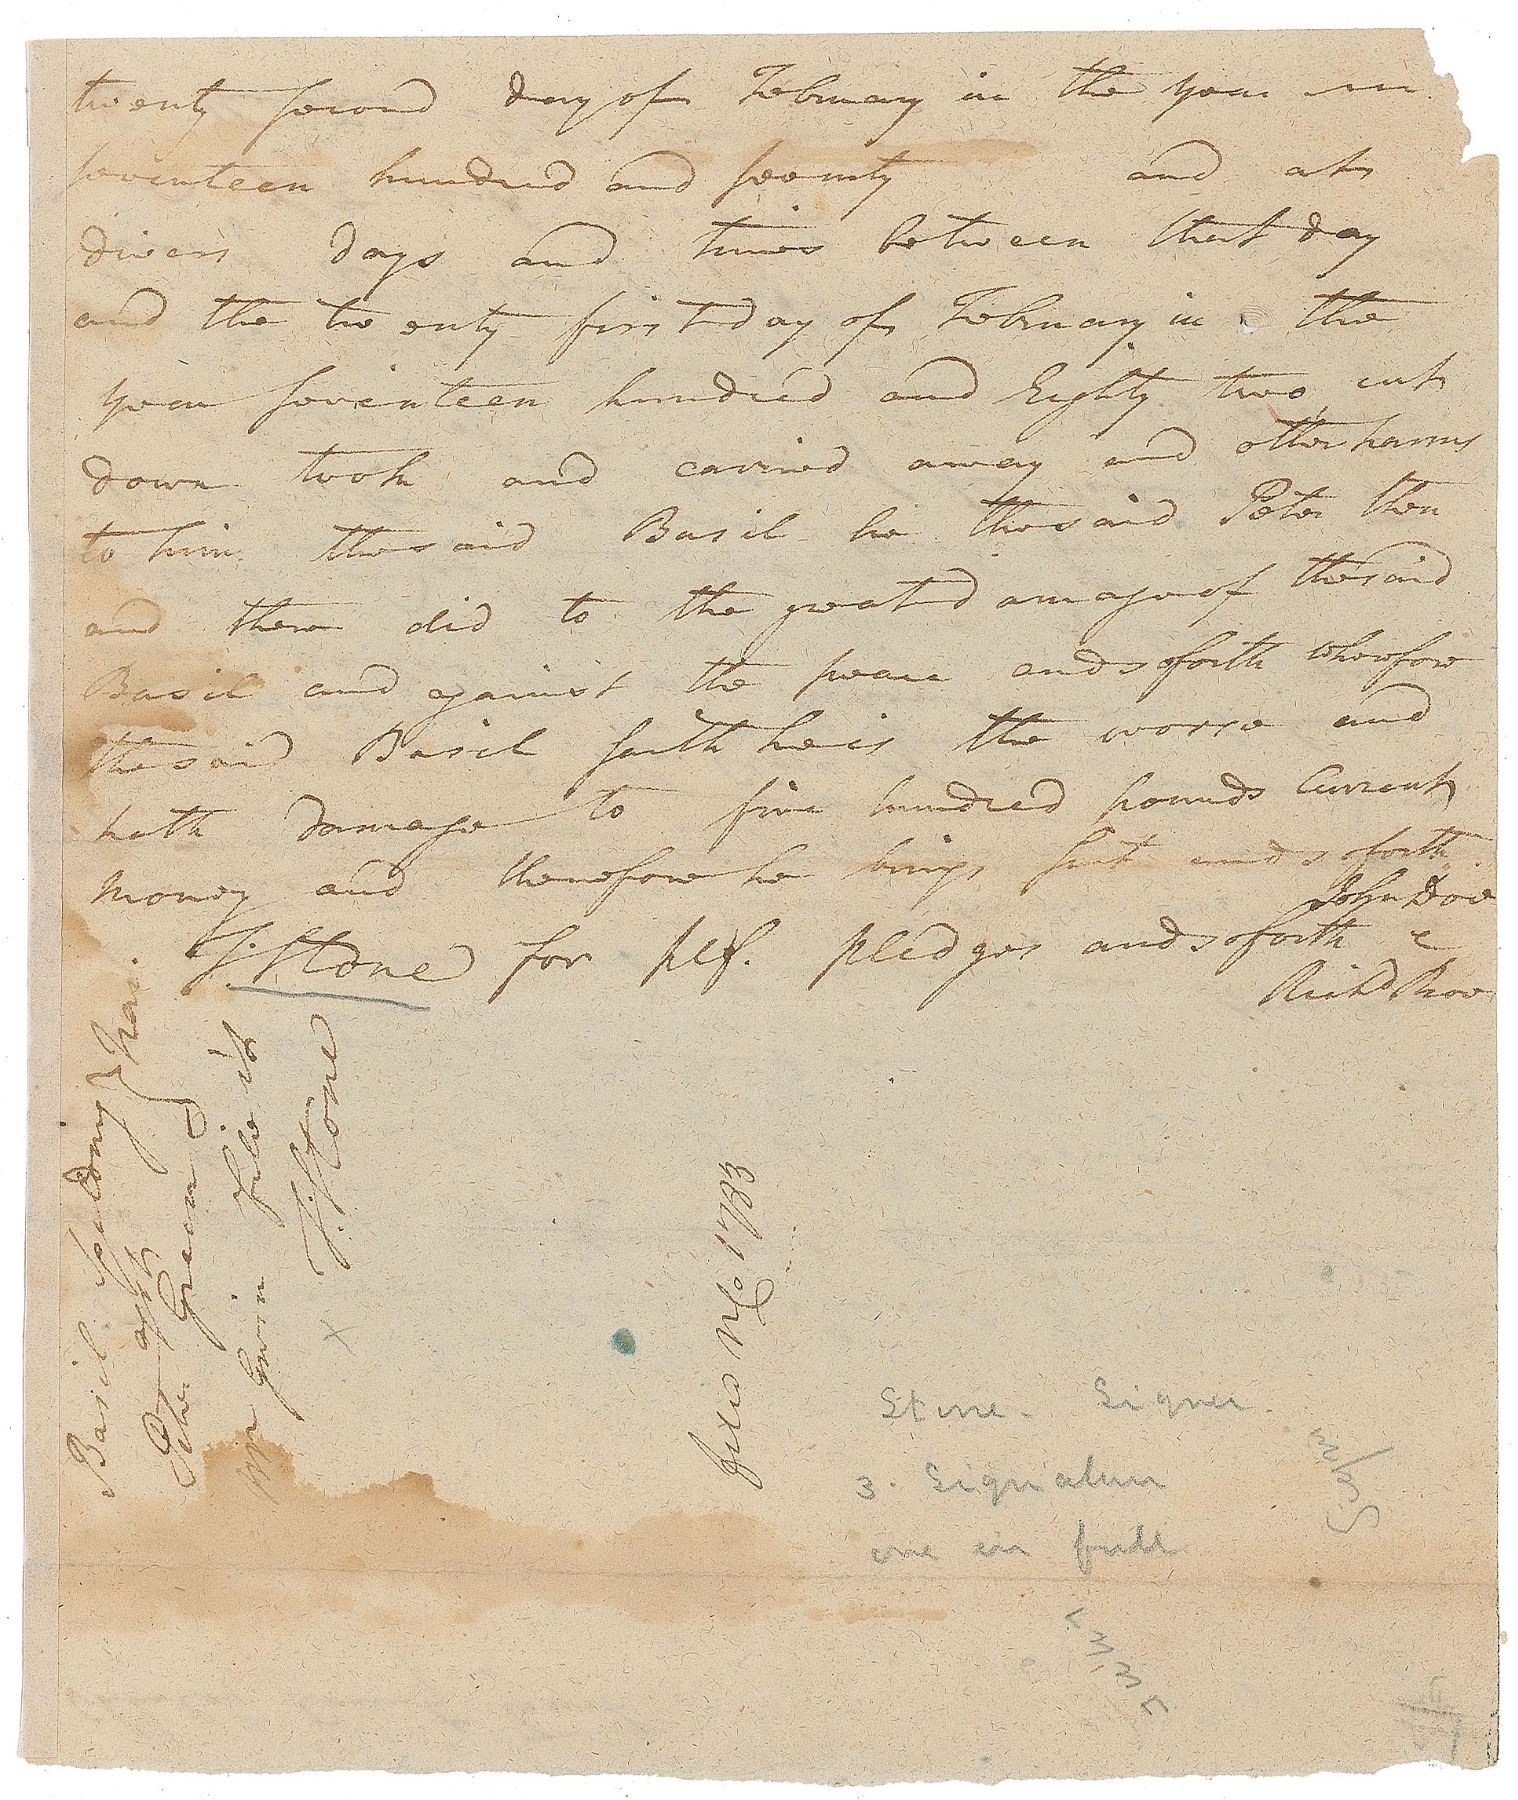 twenty second day of February in the year
seventeen hundred and seventy and at
divers days and times between that day
and the twenty first day of February in the
year seventeen hundred and Eighty two, cut
down took and carried away and other harms
to him the said Basil he the said Peter then
and there did to the great damage of the said
Basil and against the peace and so forth wherefore
the said Basil saith he is the worse and
hath damage to five hundred pounds Current
money and therefore he brings suit and so forth
John Doe
T: Stone for plf. pledges and so forth &
Richd Roe
Basil Spalding
agt
Peter
Mr Gwin file it
T: Stone
x
1783
Stone. Signer.
3. Signature
one in full